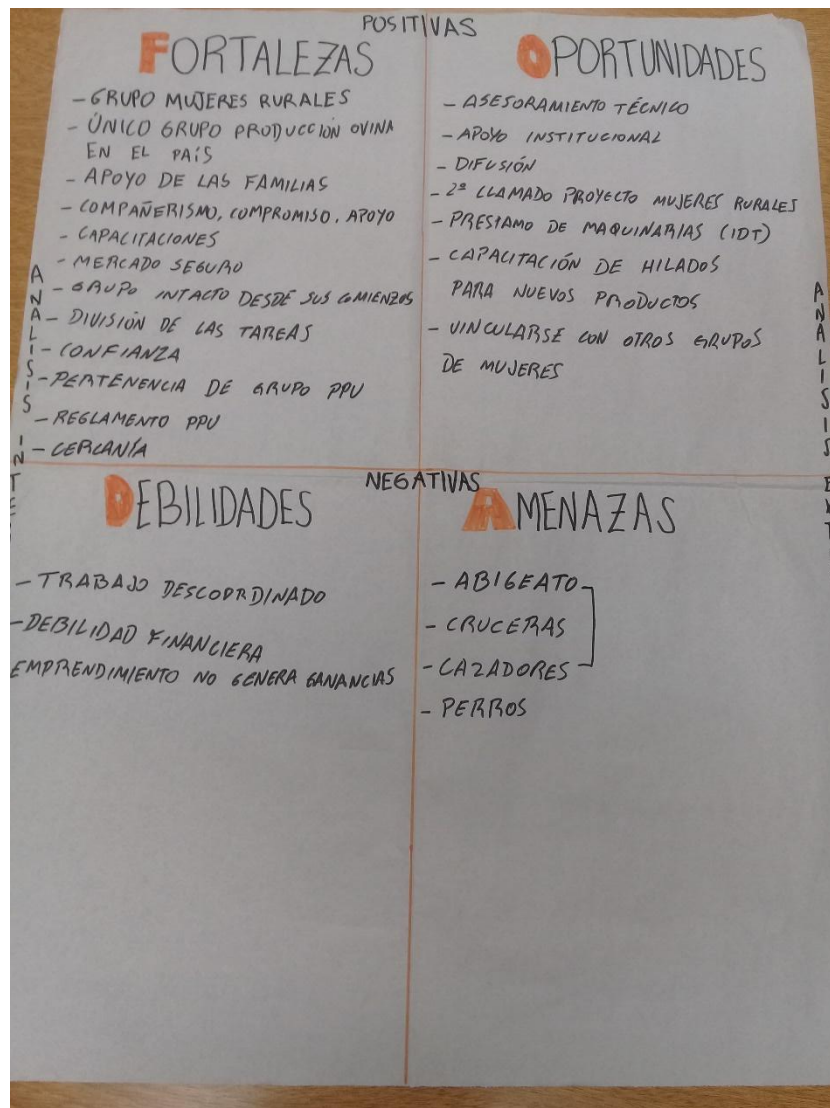 POSITIVAS
FORTALEZAS
- GRUPO MUJERES RURALES
- ÚNICO GRUPO PRODUCCIÓN OVINA
EN EL PAÍS
- APOYO DE LAS FAMILIAS
- COMPAÑERISMO, COMPROMISO, APOYO
- CAPACITACIONES
- MERCADO SEGURO
- GRUPO INTACTO DESDE SUS COMIENZOS
- DIVISIÓN DE LAS TAREAS
- CONFIANZA
- PERTENENCIA DE GRUPO PPU
- REGLAMENTO PPU
- CERCANÍA
OPORTUNIDADES
- ASESORAMIENTO TÉCNICO
- APOYO INSTITUCIONAL
- DIFUSIÓN
- 2º LLAMADO PROYECTO MUJERES RURALES
- PRESTAMO DE MAQUINARIAS (IDT)
- CAPACITACIÓN DE HILADOS
PARA NUEVOS PRODUCTOS
- VINCULARSE CON OTROS GRUPOS
DE MUJERES
ANALISIS
ANÁLISIS
NEGATIVAS
DEBILIDADES
- TRABAJO DESCOORDINADO
- DEBILIDAD FINANCIERA
EMPRENDIMIENTO NO GENERA GANANCIAS
AMENAZAS
- ABIGEATO
- CRUCERAS
- CAZADORES
- PERROS